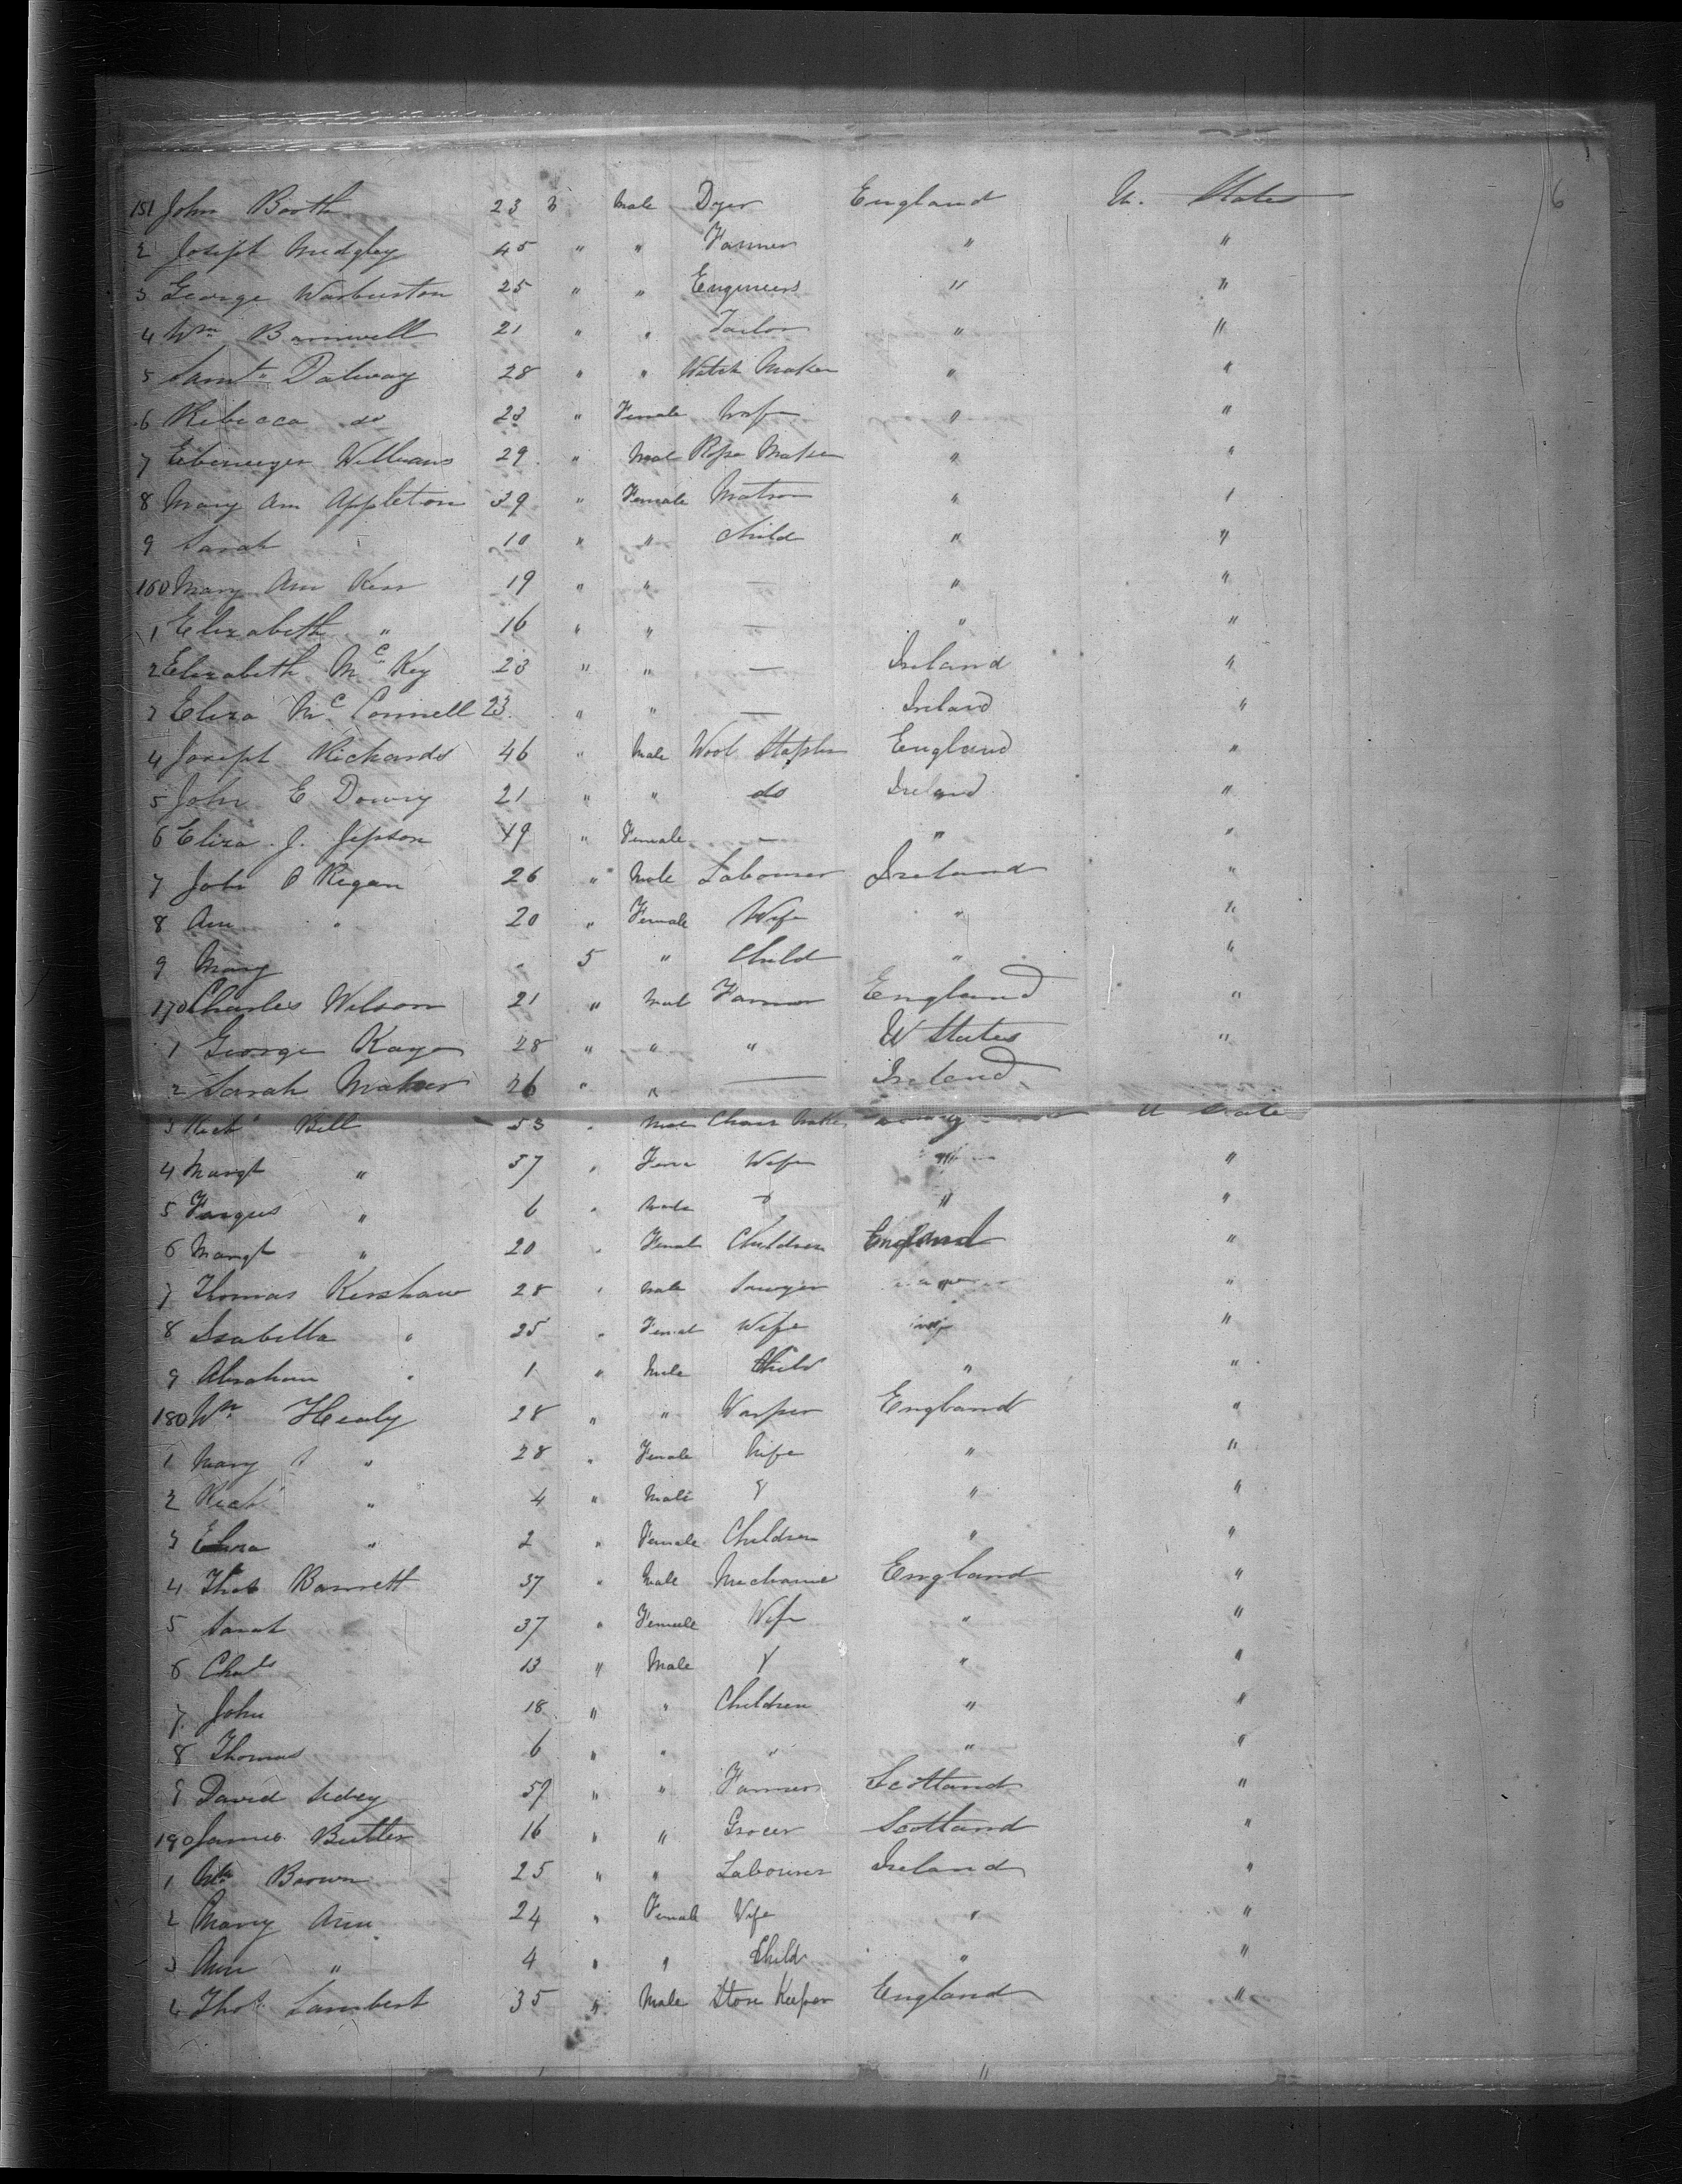 151 John Booth 23 Male Dyer England U. States 6
2 Joseph Midgley 45 " " Farmer " "
3 George Warburton 25 " " Engineers " "
4 Wm Barnwell 21 " " Tailor " "
5 Saml Dalway 28 " " Watch Maker " "
6 Rebecca do 23 " Female Wife " "
7 Ebenezer Williams 29 " Male Rope Maker " "
8 Mary Ann Appleton 39 " Female Matron " "
9 Sarah 10 " " Child " "
160 Mary Ann Kerr 19 " " — " "
1 Elizabeth " 16 " " — " "
2 Elizabeth McKey 23 " " — Ireland "
3 Eliza McConnell 23 " " — Ireland "
4 Joseph Richards 46 " Male Wool Stapler England "
5 John E 21 " " do Ireland "
6 Eliza J. Jepson 19 " Female — " "
7 John O Regan 26 " Male Labourer Ireland "
8 Ann " 20 " Female Wife " "
9 Mary " 5 " Child " "
170 Charles Wilson 21 " Male Farmer England "
1 George Kaye 28 " " " U States "
2 Sarah Maher 26 " " — Ireland "
3 Richd Bell 53 " Male Chair Maker U States
4 Margt " 37 " Fem Wife "
5 Fargus " 6 " Male " "
6 Margt " 20 " Female Children England "
7 Thomas Kershaw 28 " Male Sawyer "
8 Isabella " 25 " Female Wife "
9 Abraham " 1 " Male Child " "
180 Wm Healy 28 " " Warper England "
1 Mary " 28 " Female Wife " "
2 Richd " 4 " Male " "
3 " 2 " Female Children " "
4 Thos Barrett 37 " Male Mechanic England "
5 Sarah 37 " Female Wife " "
6 Chals 13 " Male " "
7 John 18 " " Children " "
8 Thomas 6 " " " " "
9 David " " Farmer Scotland "
190 James Butler 16 " " Grocer Scotland "
1 Wm Brown 25 " " Labourer Ireland "
2 Mary Ann 24 " Female Wife " "
3 Ann " 4 " " Child " "
4 Thos Lambert 35 " Male Store Keeper England "